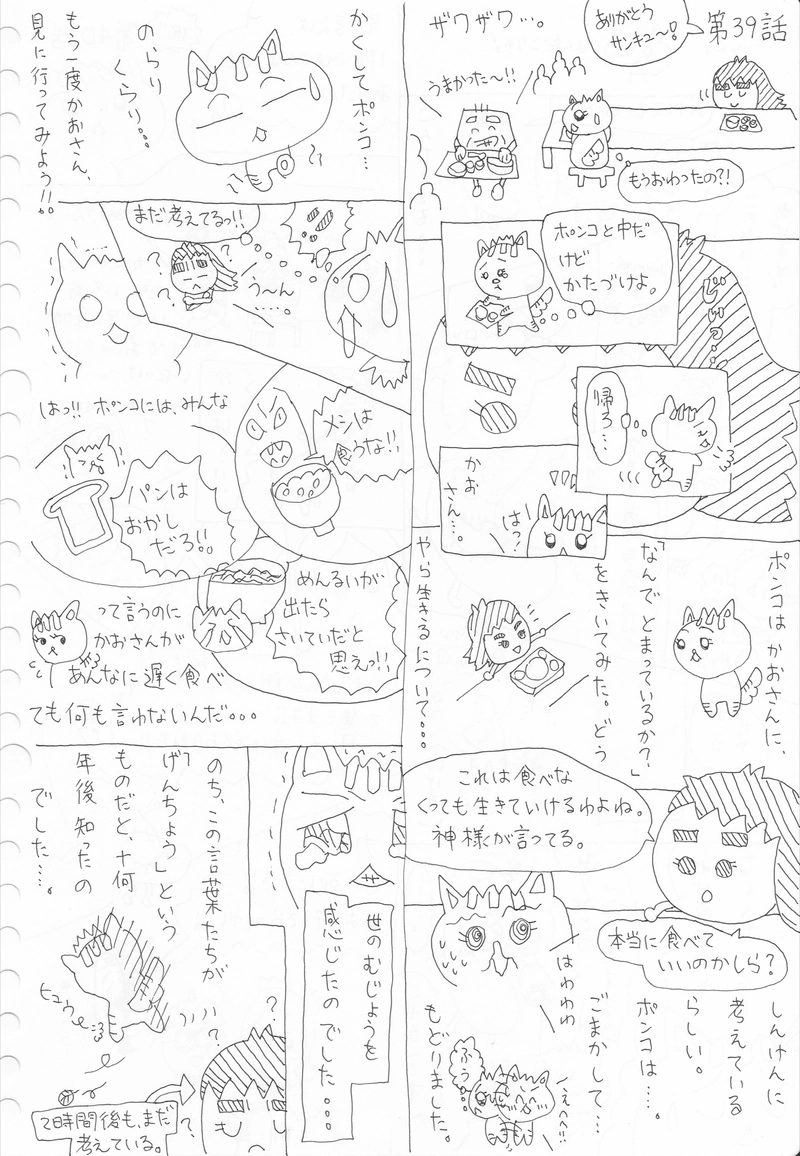 第39話
ありがとう
サンキュ〜!
ザワザワ…。
うまかった〜!!
もうおわったの?!
ポンコと中だ
けど
かたづけよ。
じいっ…
帰ろ…
はっ!
かお
さん…。
ポンコはかおさんに、
「なんでとまっているか?」
をきいてみた。どう
やら生きるについて…
これは食べな
くっても生きていけるわよね。
神様が言ってる。
本当に食べて
いいのかしら?
しんけんに
考えている
らしい。
ポンコは…。
はわわわ
ごまかして…
もどりました。
ふう…
へへへ!!
かくしてポンコ…
のらり
くらり…
もう一度かおさん、
見に行ってみよう!!。
まだ考えてるっ!!
う〜ん
……。
はっ!!ポンコには、みんな
メシは
食うな!!
パンは
おかし
だろ!!
めんるいが
出たら
さいていだと
思えっ!!
って言うのに
かおさんが
あんなに遅く食べ
ても何も言わないんだ。。。
世のむじょうを
感じたのでした…
のち、この言葉たちが
「げんちょう」という
ものだと、十何
年後知ったの
でした…。
ヒュウ〜
2時間後も、まだ
考えている。